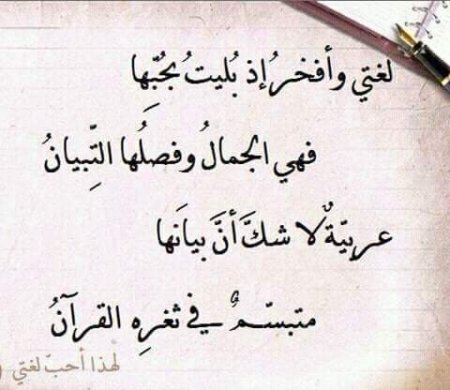 لغتي وأفخرُ إذ بُليتُ بحُبّها
فهي الجمالُ وفصلُها التِّبيانُ
عربيّةٌ لا شكَّ أنَّ بيانَها
متبسّمٌ في ثغرِه القرآنُ
لهذا أحبّ لغتي